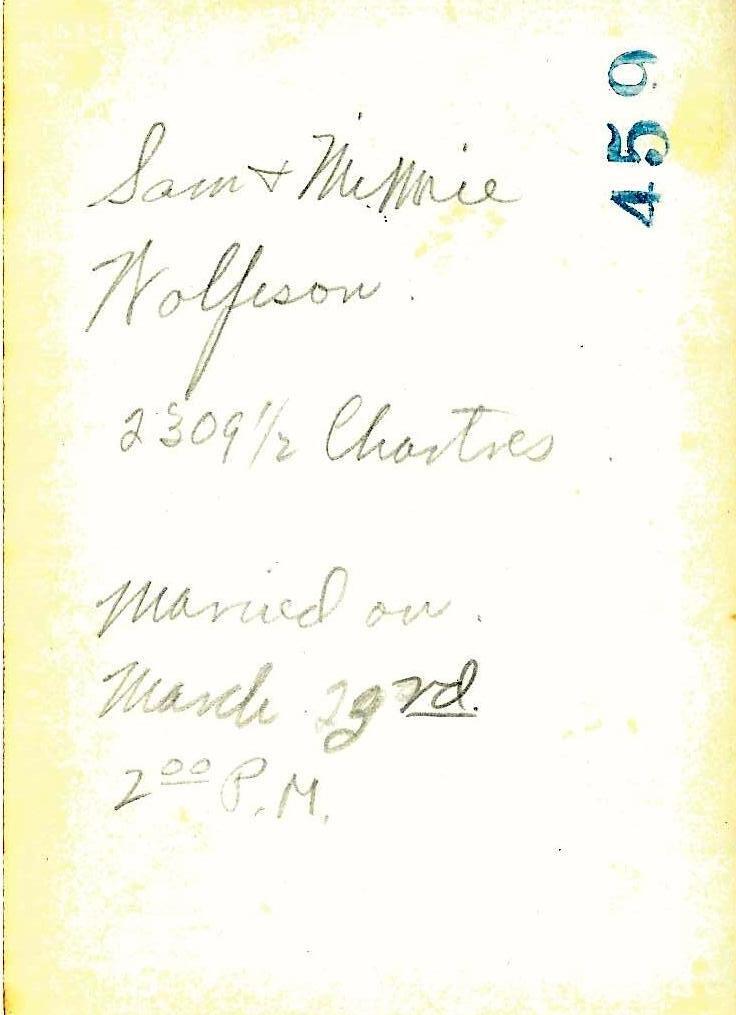 459
Sam & Minnie
Wolfeson.
2309 1/2 Chartres.
Married on.
March 23rd.
2⁰⁰ P.M.